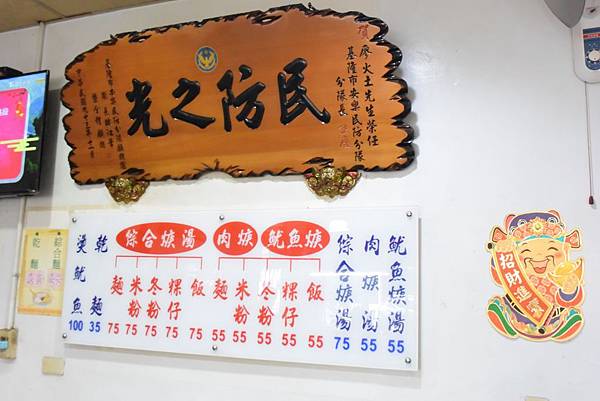 民防之光
賀
廖火土先生榮任
基隆市安樂民防分隊
分隊長
魷魚焿 肉焿 綜合焿湯
魷魚焿湯 55
肉焿湯 55
綜合焿湯 75
飯 55
粿仔 55
冬粉 55
米粉 55
麵 55
飯 75
粿仔 75
冬粉 75
米粉 75
麵 75
乾麵 35
燙魷魚 100
綜合麵
乾麵
招財進寶